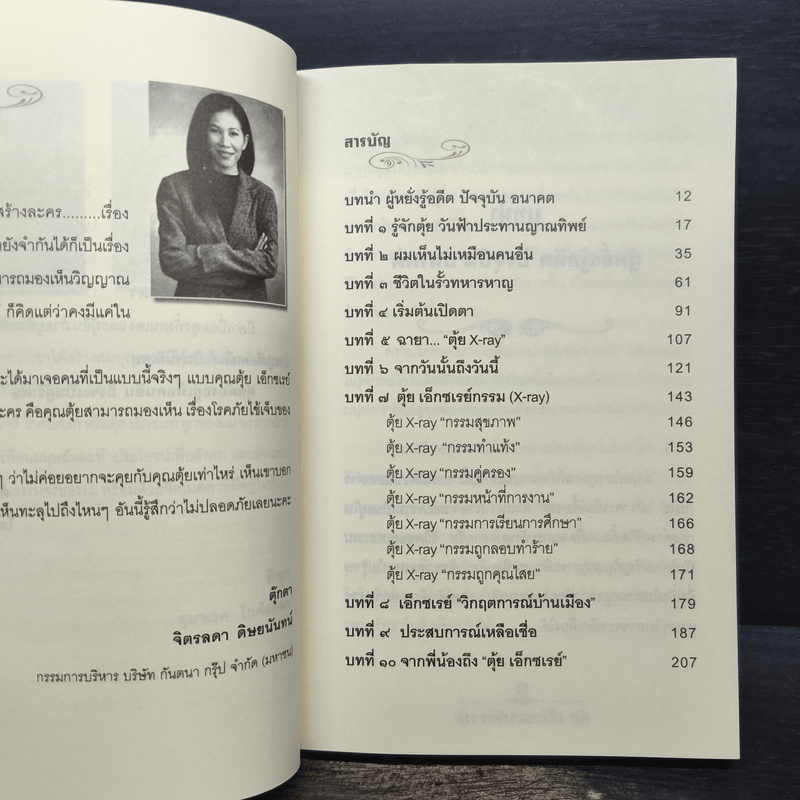 สร้างละคร.........เรื่อง
ยังจำกันได้ก็เป็นเรื่อง
ารถมองเห็นวิญญาณ
ก็คิดแต่ว่าคงมีแค่ใน
ะได้มาเจอคนที่เป็นแบบนี้จริงๆ แบบคุณตุ้ย เอ็กซเรย์
ะคร คือคุณตุ้ยสามารถมองเห็น เรื่องโรคภัยไข้เจ็บของ
ๆ ว่าไม่ค่อยอยากจะคุยกับคุณตุ้ยเท่าไหร่ เห็นเขาบอก
ห็นทะลุไปถึงไหนๆ อันนี้รู้สึกว่าไม่ปลอดภัยเลยนะคะ
ตุ๊กตา
จิตรลดา ดิษยนันทน์
กรรมการบริหาร บริษัท กันตนา กรุ๊ป จำกัด (มหาชน)
สารบัญ
บทนำ ผู้หยั่งรู้อดีต ปัจจุบัน อนาคต 12
บทที่ ๑ รู้จักตุ้ย วันฟ้าประทานญาณทิพย์ 17
บทที่ ๒ ผมเห็นไม่เหมือนคนอื่น 35
บทที่ ๓ ชีวิตในรั้วทหารหาญ 61
บทที่ ๔ เริ่มต้นเปิดตา 91
บทที่ ๕ ฉายา... “ตุ้ย X-ray” 107
บทที่ ๖ จากวันนั้นถึงวันนี้ 121
บทที่ ๗ ตุ้ย เอ็กซเรย์กรรม (X-ray) 143
ตุ้ย X-ray “กรรมสุขภาพ” 146
ตุ้ย X-ray “กรรมทำแท้ง” 153
ตุ้ย X-ray “กรรมคู่ครอง” 159
ตุ้ย X-ray “กรรมหน้าที่การงาน” 162
ตุ้ย X-ray “กรรมการเรียนการศึกษา” 166
ตุ้ย X-ray “กรรมถูกลอบทำร้าย” 168
ตุ้ย X-ray “กรรมถูกคุณไสย” 171
บทที่ ๘ เอ็กซเรย์ “วิกฤตการณ์บ้านเมือง” 179
บทที่ ๙ ประสบการณ์เหลือเชื่อ 187
บทที่ ๑๐ จากพี่น้องถึง “ตุ้ย เอ็กซเรย์” 207